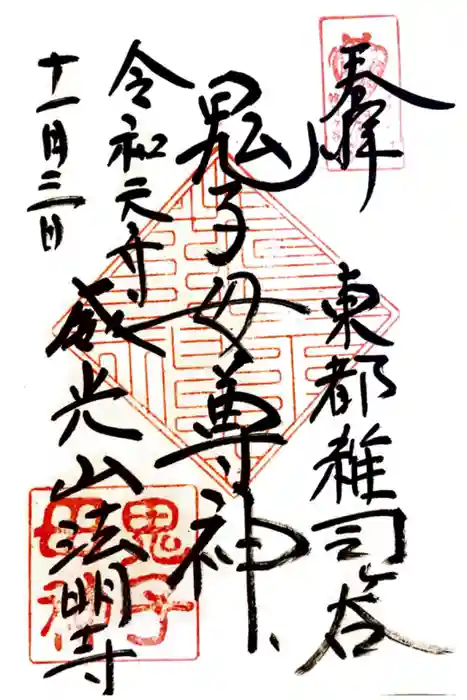 奉拝
東都雑司ヶ谷
鬼子母尊神
令和元年
十一月三日
威光山法明寺
鬼子母神